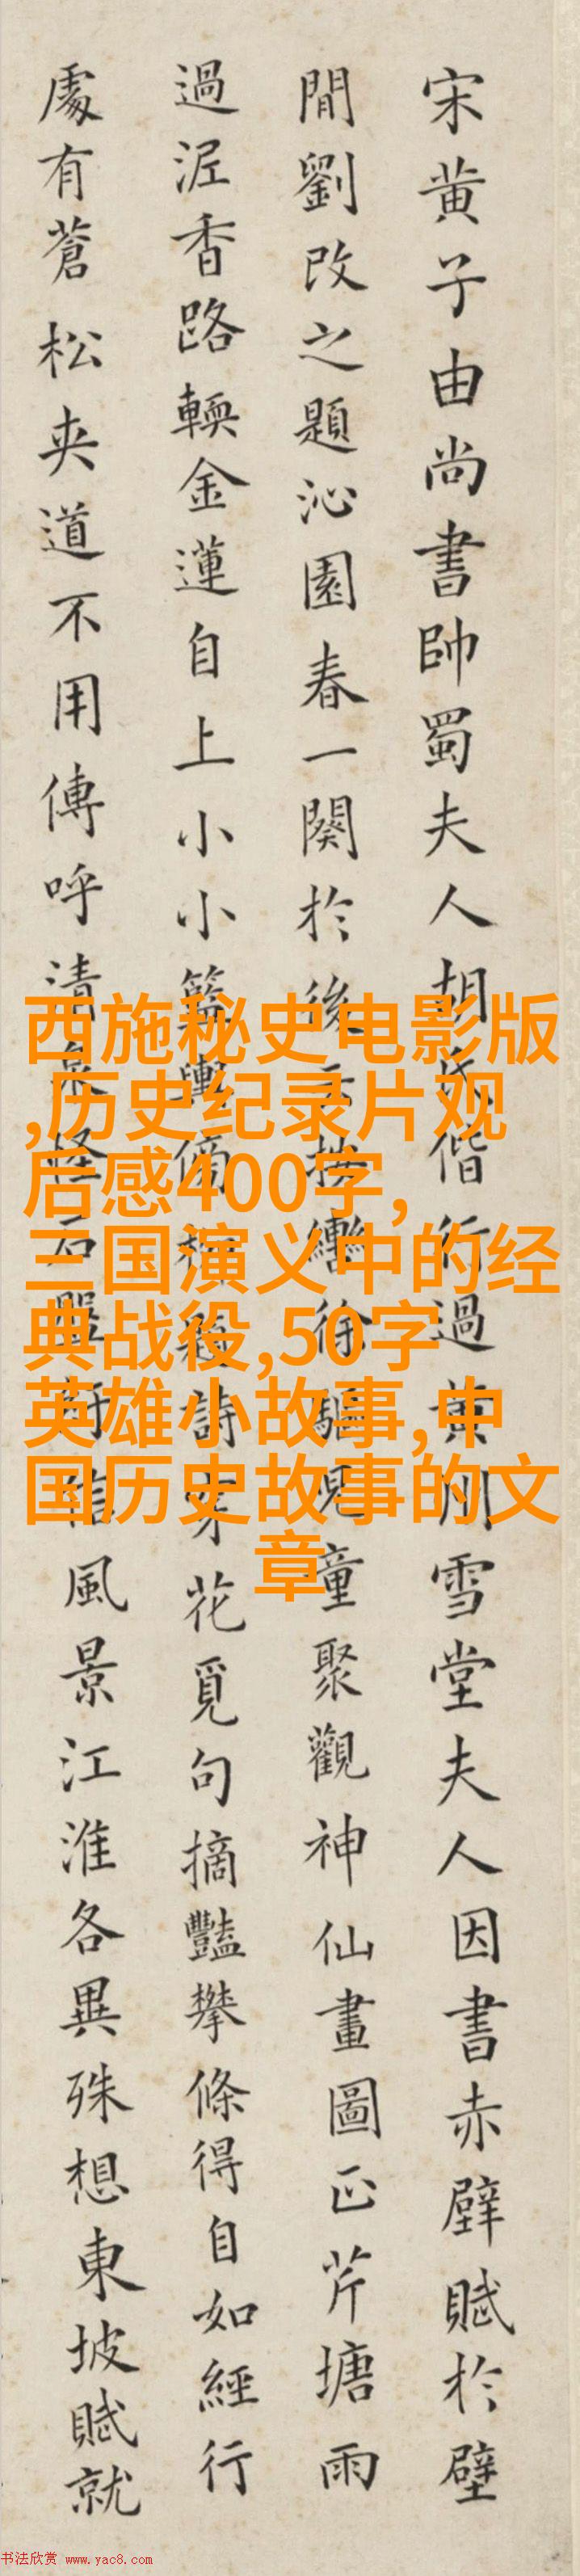 宋黄子由尚書帥蜀夫人胡氏偕行過黄州雪堂夫人因書赤壁賦於壁
間劉改之題沁園春一闋於後云按轡徐驅兒童聚觀神仙畫圖正芹塘雨
過泥香路輭金蓮自上小小籃輿傍柳題詩穿花覓句摘豔攀條得自如經行
處有蒼松夾道不用傳呼清泉怪石盤紆信風景江淮各異殊想東坡賦就
西施秘史电影版
,历史纪录片观
后感400字,
三国演义中的经
典战役,50字
英雄小故事,中
国历史故事的文
章
书法欣赏 www.yac8.com